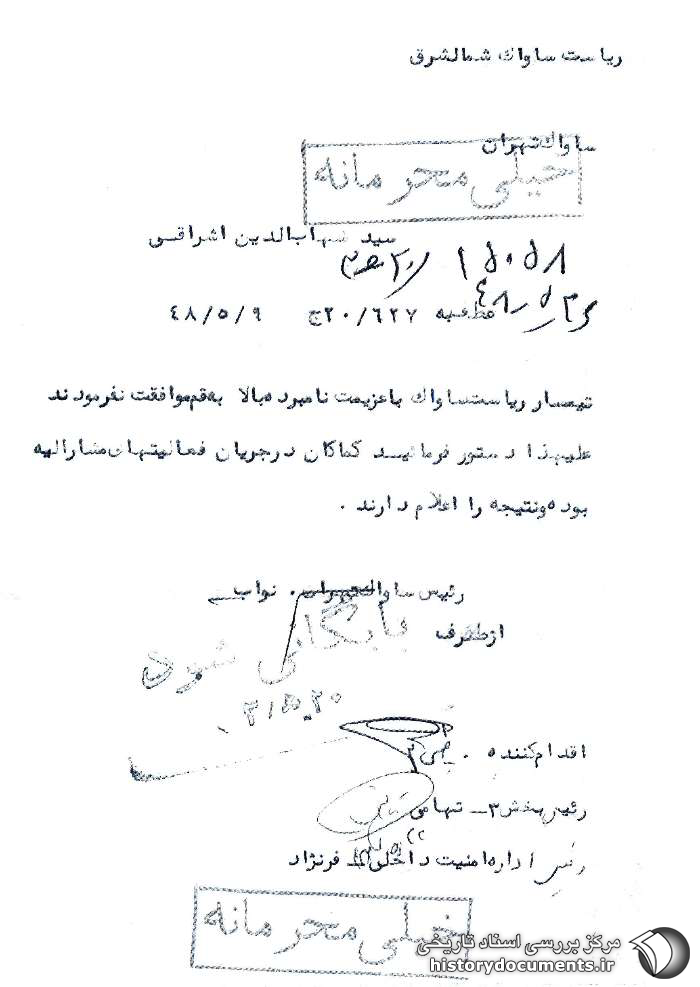 ریاست ساواک شمالشرق
ساواک تهران
خیلی محرمانه
سید شهاب‌الدین اشراقی
عطف به ۲۰/۶۲۷ج ۴۸/۵/۹
تیمسار ریاست ساواک با عزیمت نامبرده بالا به قم موافقت نفرمودند
علیهذا دستور فرمائید کماکان در جریان فعالیتهای مشارالیه
بوده و نتیجه را اعلام دارند .
رئیس ساواک تهران . نواب
از طرف
بایگانی شود
اقدام کننده .
رئیس بخش ۳ــ تهامی
رئیس اداره امنیت داخلی ــ فرنژاد
خیلی محرمانه
مرکز بررسی اسناد تاریخی
historydocuments.ir